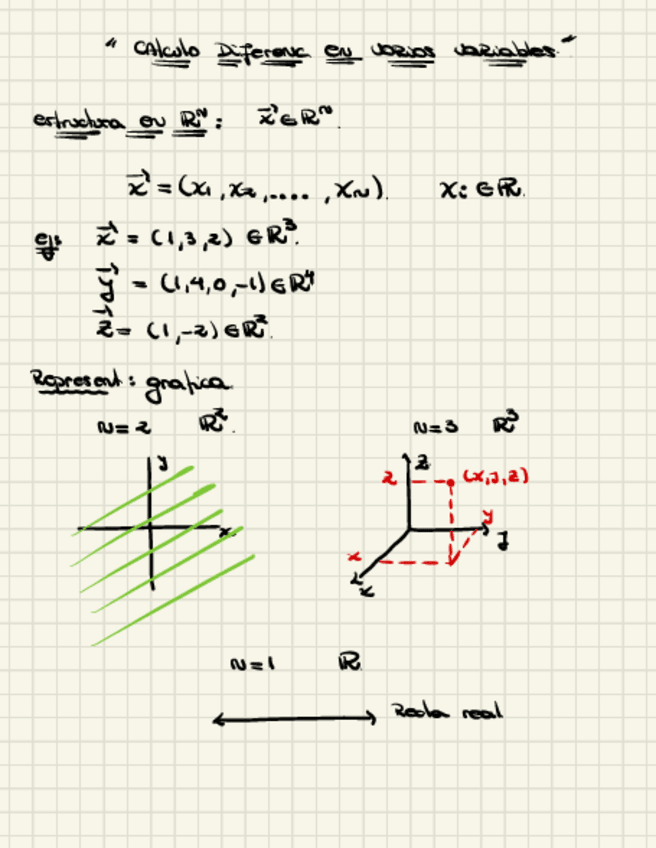 " Cálculo Diferenc en varios variables. "
estructura en ℝⁿ: x⃗ ∈ ℝⁿ.
x⃗ = (x₁, x₂, ...., xₙ). xᵢ ∈ ℝ.
ej: x⃗ = (1,3,2) ∈ ℝ³.
y⃗ = (1,4,0,-1) ∈ ℝ⁴
z⃗ = (1,-2) ∈ ℝ².
Represent: grafica.
n=2 ℝ². n=3 ℝ³
y
x
z
z (x,y,z)
y
y
x
x
n=1 ℝ
Recta real